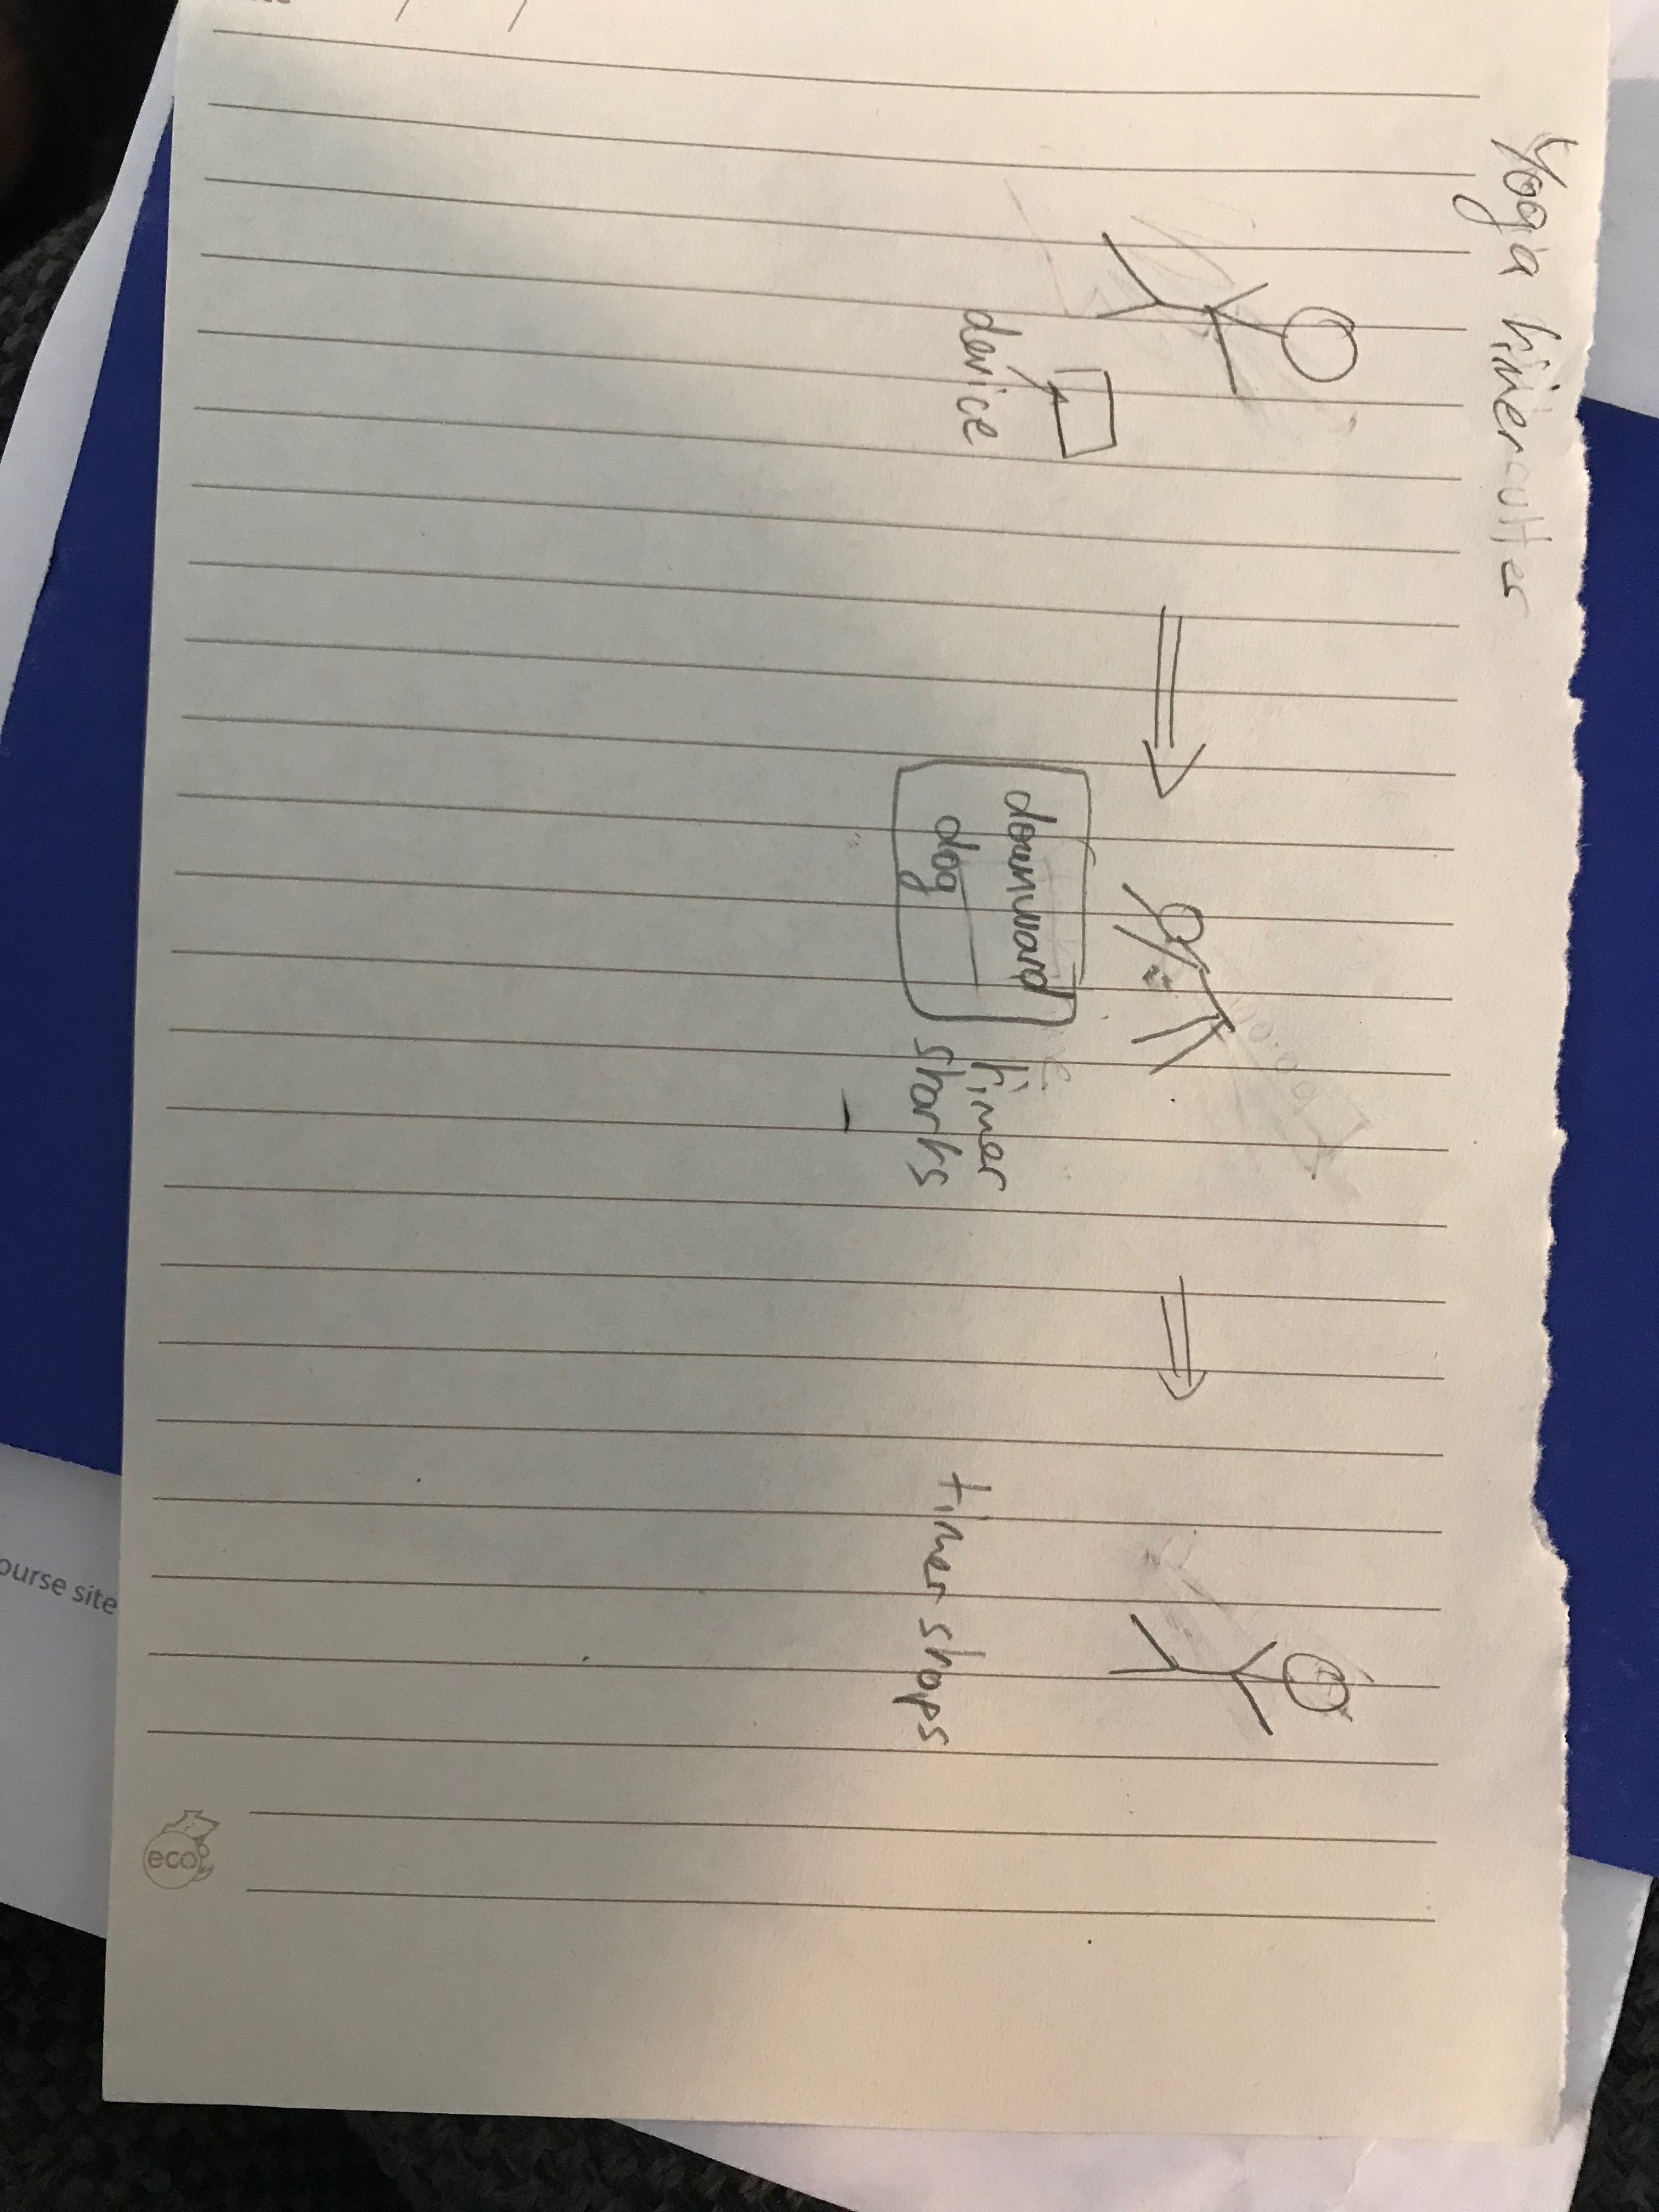 Yoga timer
device
downward
dog
timer
starts
timer stops
eco
ourse site